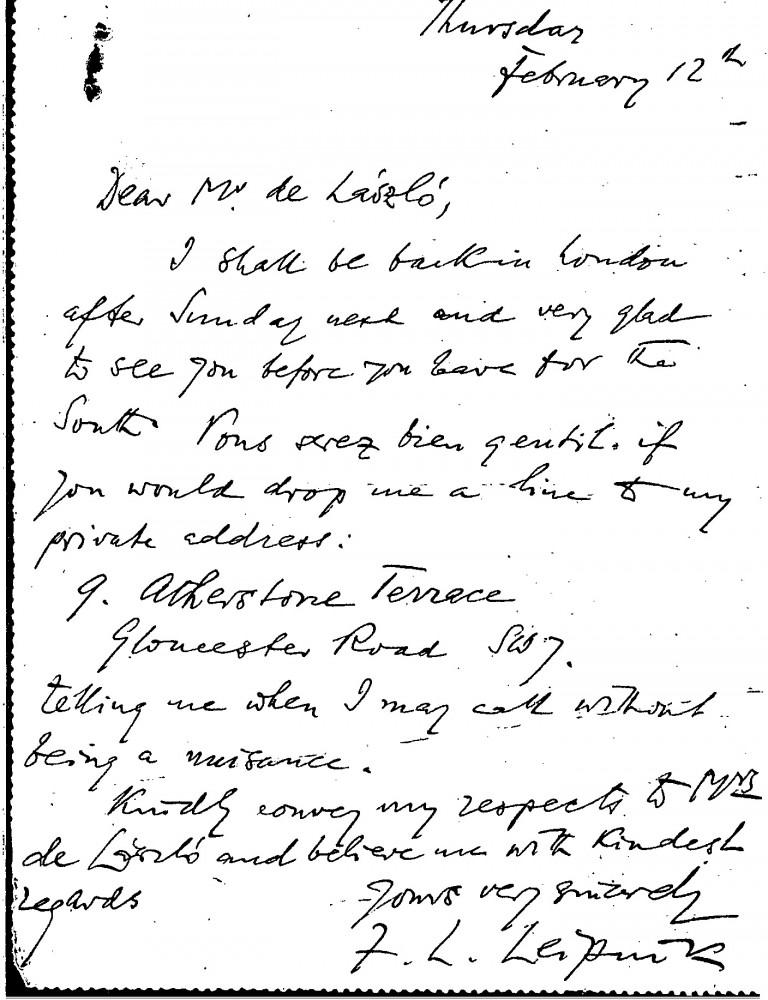 Thursday
February 12th
Dear Mr. de László,
I shall be back in London
after Sunday next and very glad
to see you before you leave for the
South. Vous serez bien gentil. if
you would drop me a line to my
private address:
9. Atherstone Terrace
Gloucester Road SW7.
telling me when I may call without
being a nuisance.
Kindly convey my respects to Mrs
de László and believe me with kindest
regards
Yours very sincerely
F. L. Leipnik